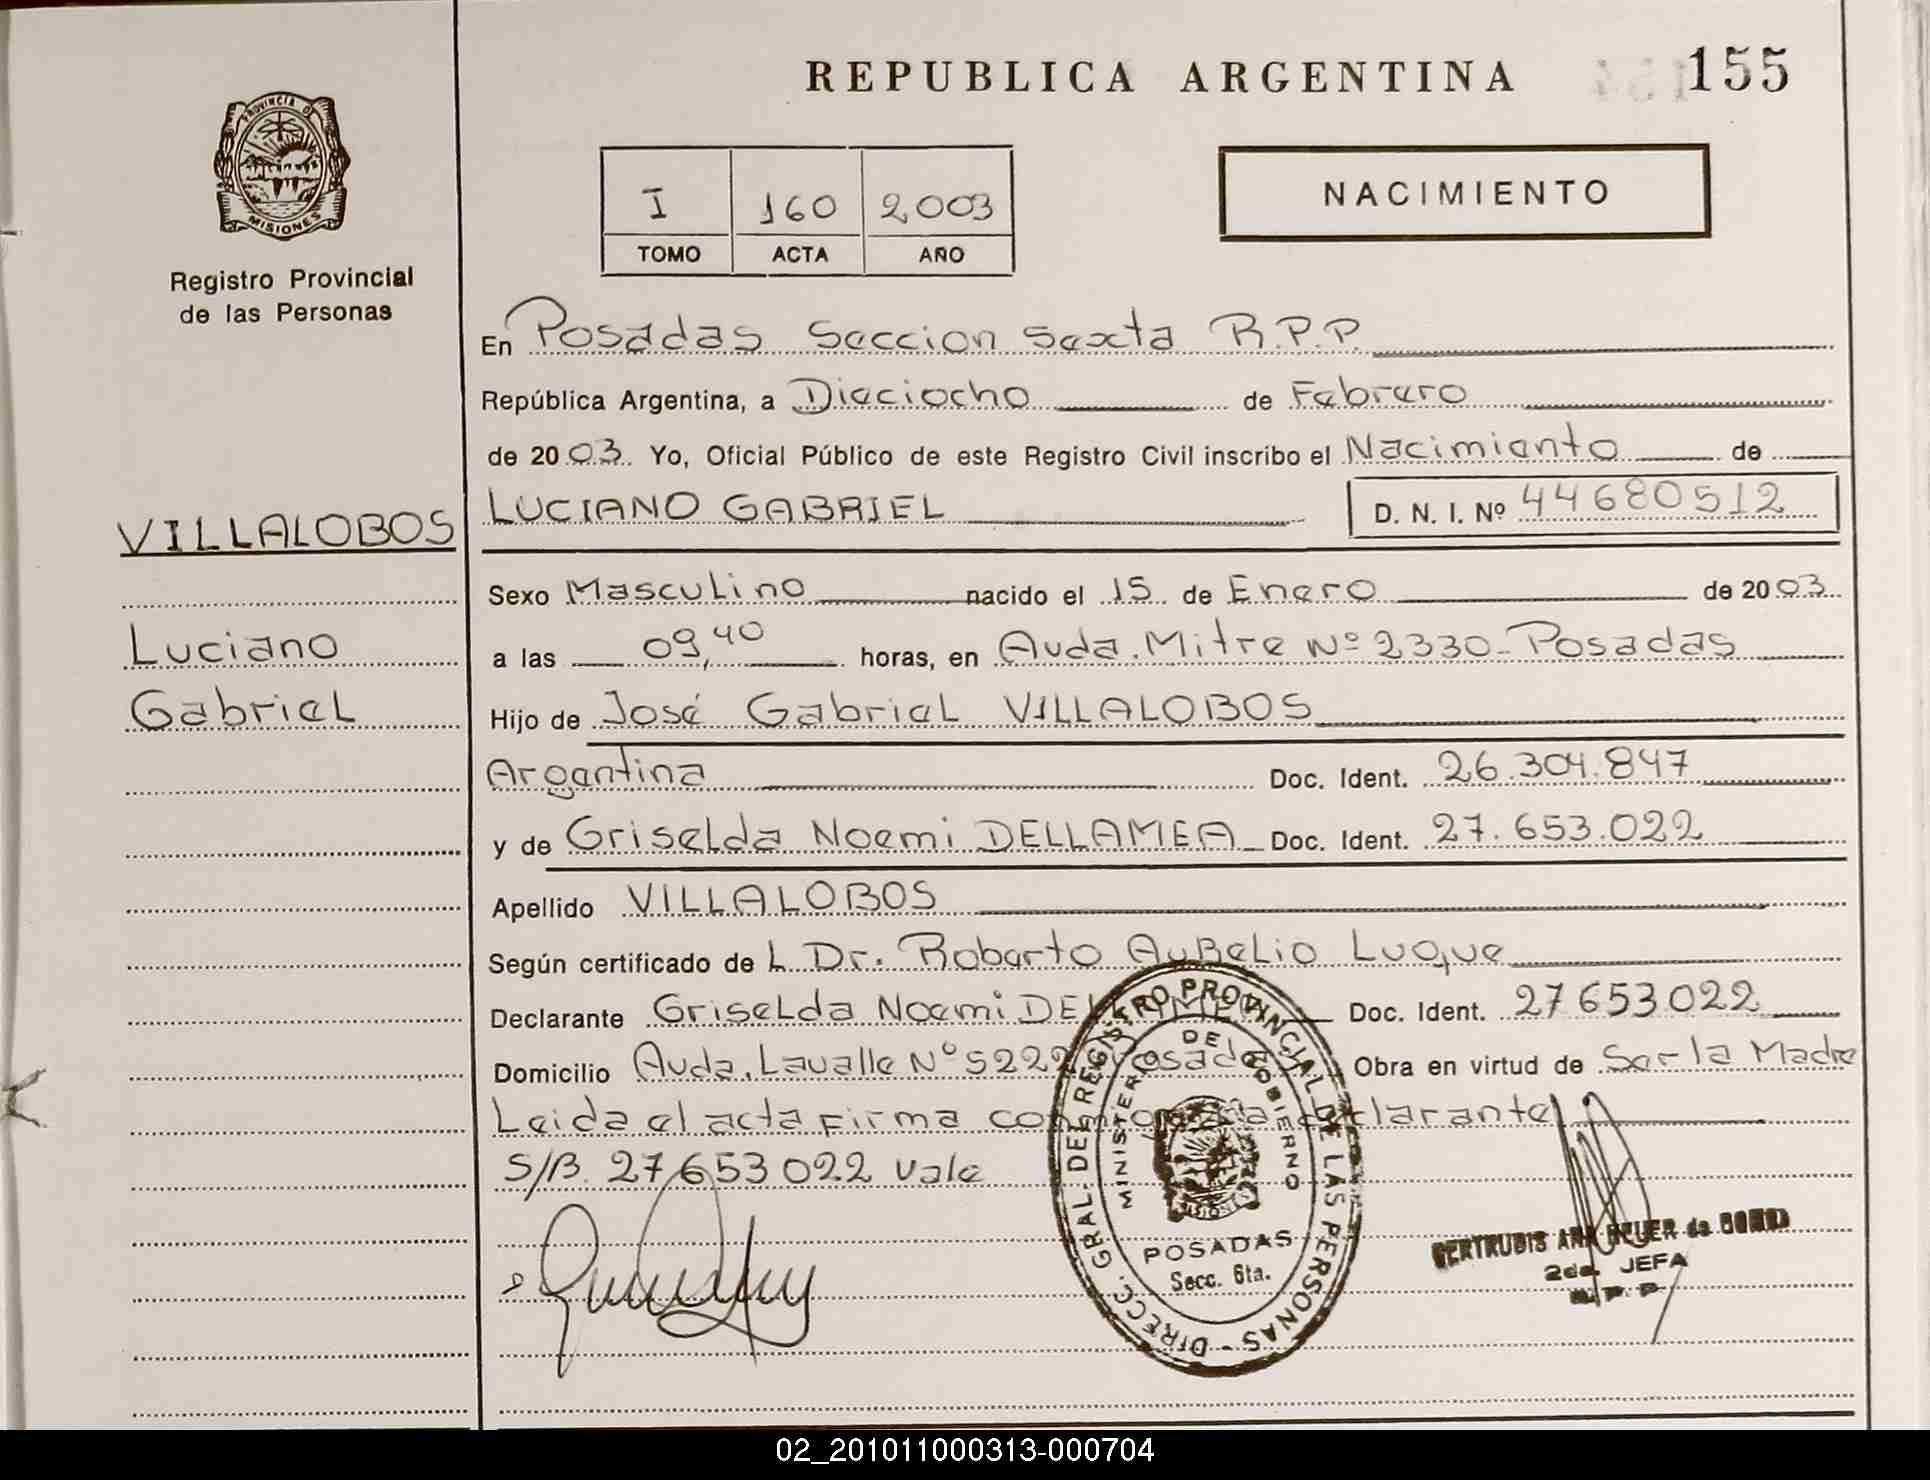 REPUBLICA ARGENTINA
155
PROVINCIA DE
MISIONES
Registro Provincial
de las Personas
I 160 2003
TOMO ACTA AÑO
NACIMIENTO
En Posadas Seccion Sexta R.P.P.
República Argentina, a Dieciocho de Febrero
de 2003. Yo, Oficial Público de este Registro Civil inscribo el Nacimiento de
VILLALOBOS
Luciano
Gabriel
LUCIANO GABRIEL D. N. I. Nº 44680512
Sexo Masculino nacido el 15 de Enero de 2003
a las 09,40 horas, en Avda. Mitre Nº 2330-Posadas
Hijo de José Gabriel VILLALOBOS
Argentina Doc. Ident. 26.304.847
y de Griselda Noemi DELLAMEA Doc. Ident. 27.653.022
Apellido VILLALOBOS
Según certificado de L Dr. Roberto AuRelio Luque
Declarante Griselda Noemi Doc. Ident. 27653022
Domicilio Avda. Lavalle Nº 5222 Posadas Obra en virtud de Ser la Madre
Leida el acta Firma declarante
S/B. 27653022 vale
DIRECC. GRAL. DEL REGISTRO PROVINCIAL DE LAS PERSONAS
MINISTERIO DE GOBIERNO
POSADAS
Secc. 6ta.
GERTRUDIS ANA
2da. JEFA
R. P. P.
02_201011000313-000704